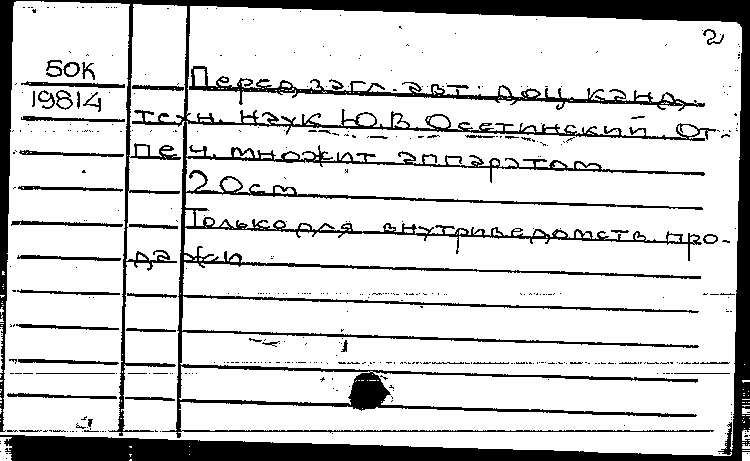 2
50К Перед загл. авт.: доц. канд.
19814 техн. наук Ю.В. Осетинский. От-
печ. множит аппаратом
20см
Только для внутриведомств. про-
дажи